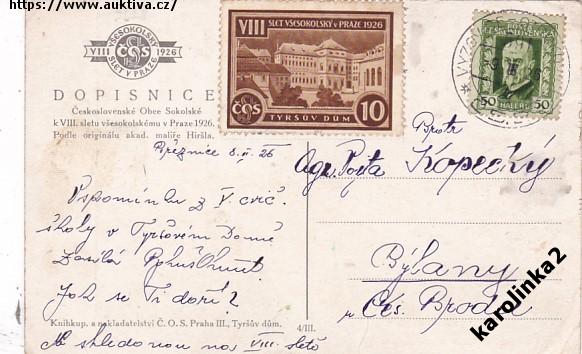 https://www.auktiva.cz/
VŠESOKOLSKÝ
VIII ČOS 1926
SLET V PRAZE
DOPISNICE
Československé Obce Sokolské
k VIII. sletu všesokolskému v Praze 1926.
Podle originálu akad. malíře Hiršla.
VIII SLET VŠESOKOLSKÝ V PRAZE 1926
ČOS 10
TYRŠŮV DŮM
POŠTA
ČESKOSLOVENSKÁ
50 HALÉŘŮ 50
Březnice 8.II 26
Bratr
Pepta Kopecký
Vzpomínku z V. cvič.
školy v Tyršovém Domě
zasílá
Jak se Ti daří?
Bylany
u Čes. Brodu
Knihkup. a nakladatelství Č. O. S. Praha III., Tyršův dům.
4/III.
Na shledanou na VIII. sletě
karolinka2